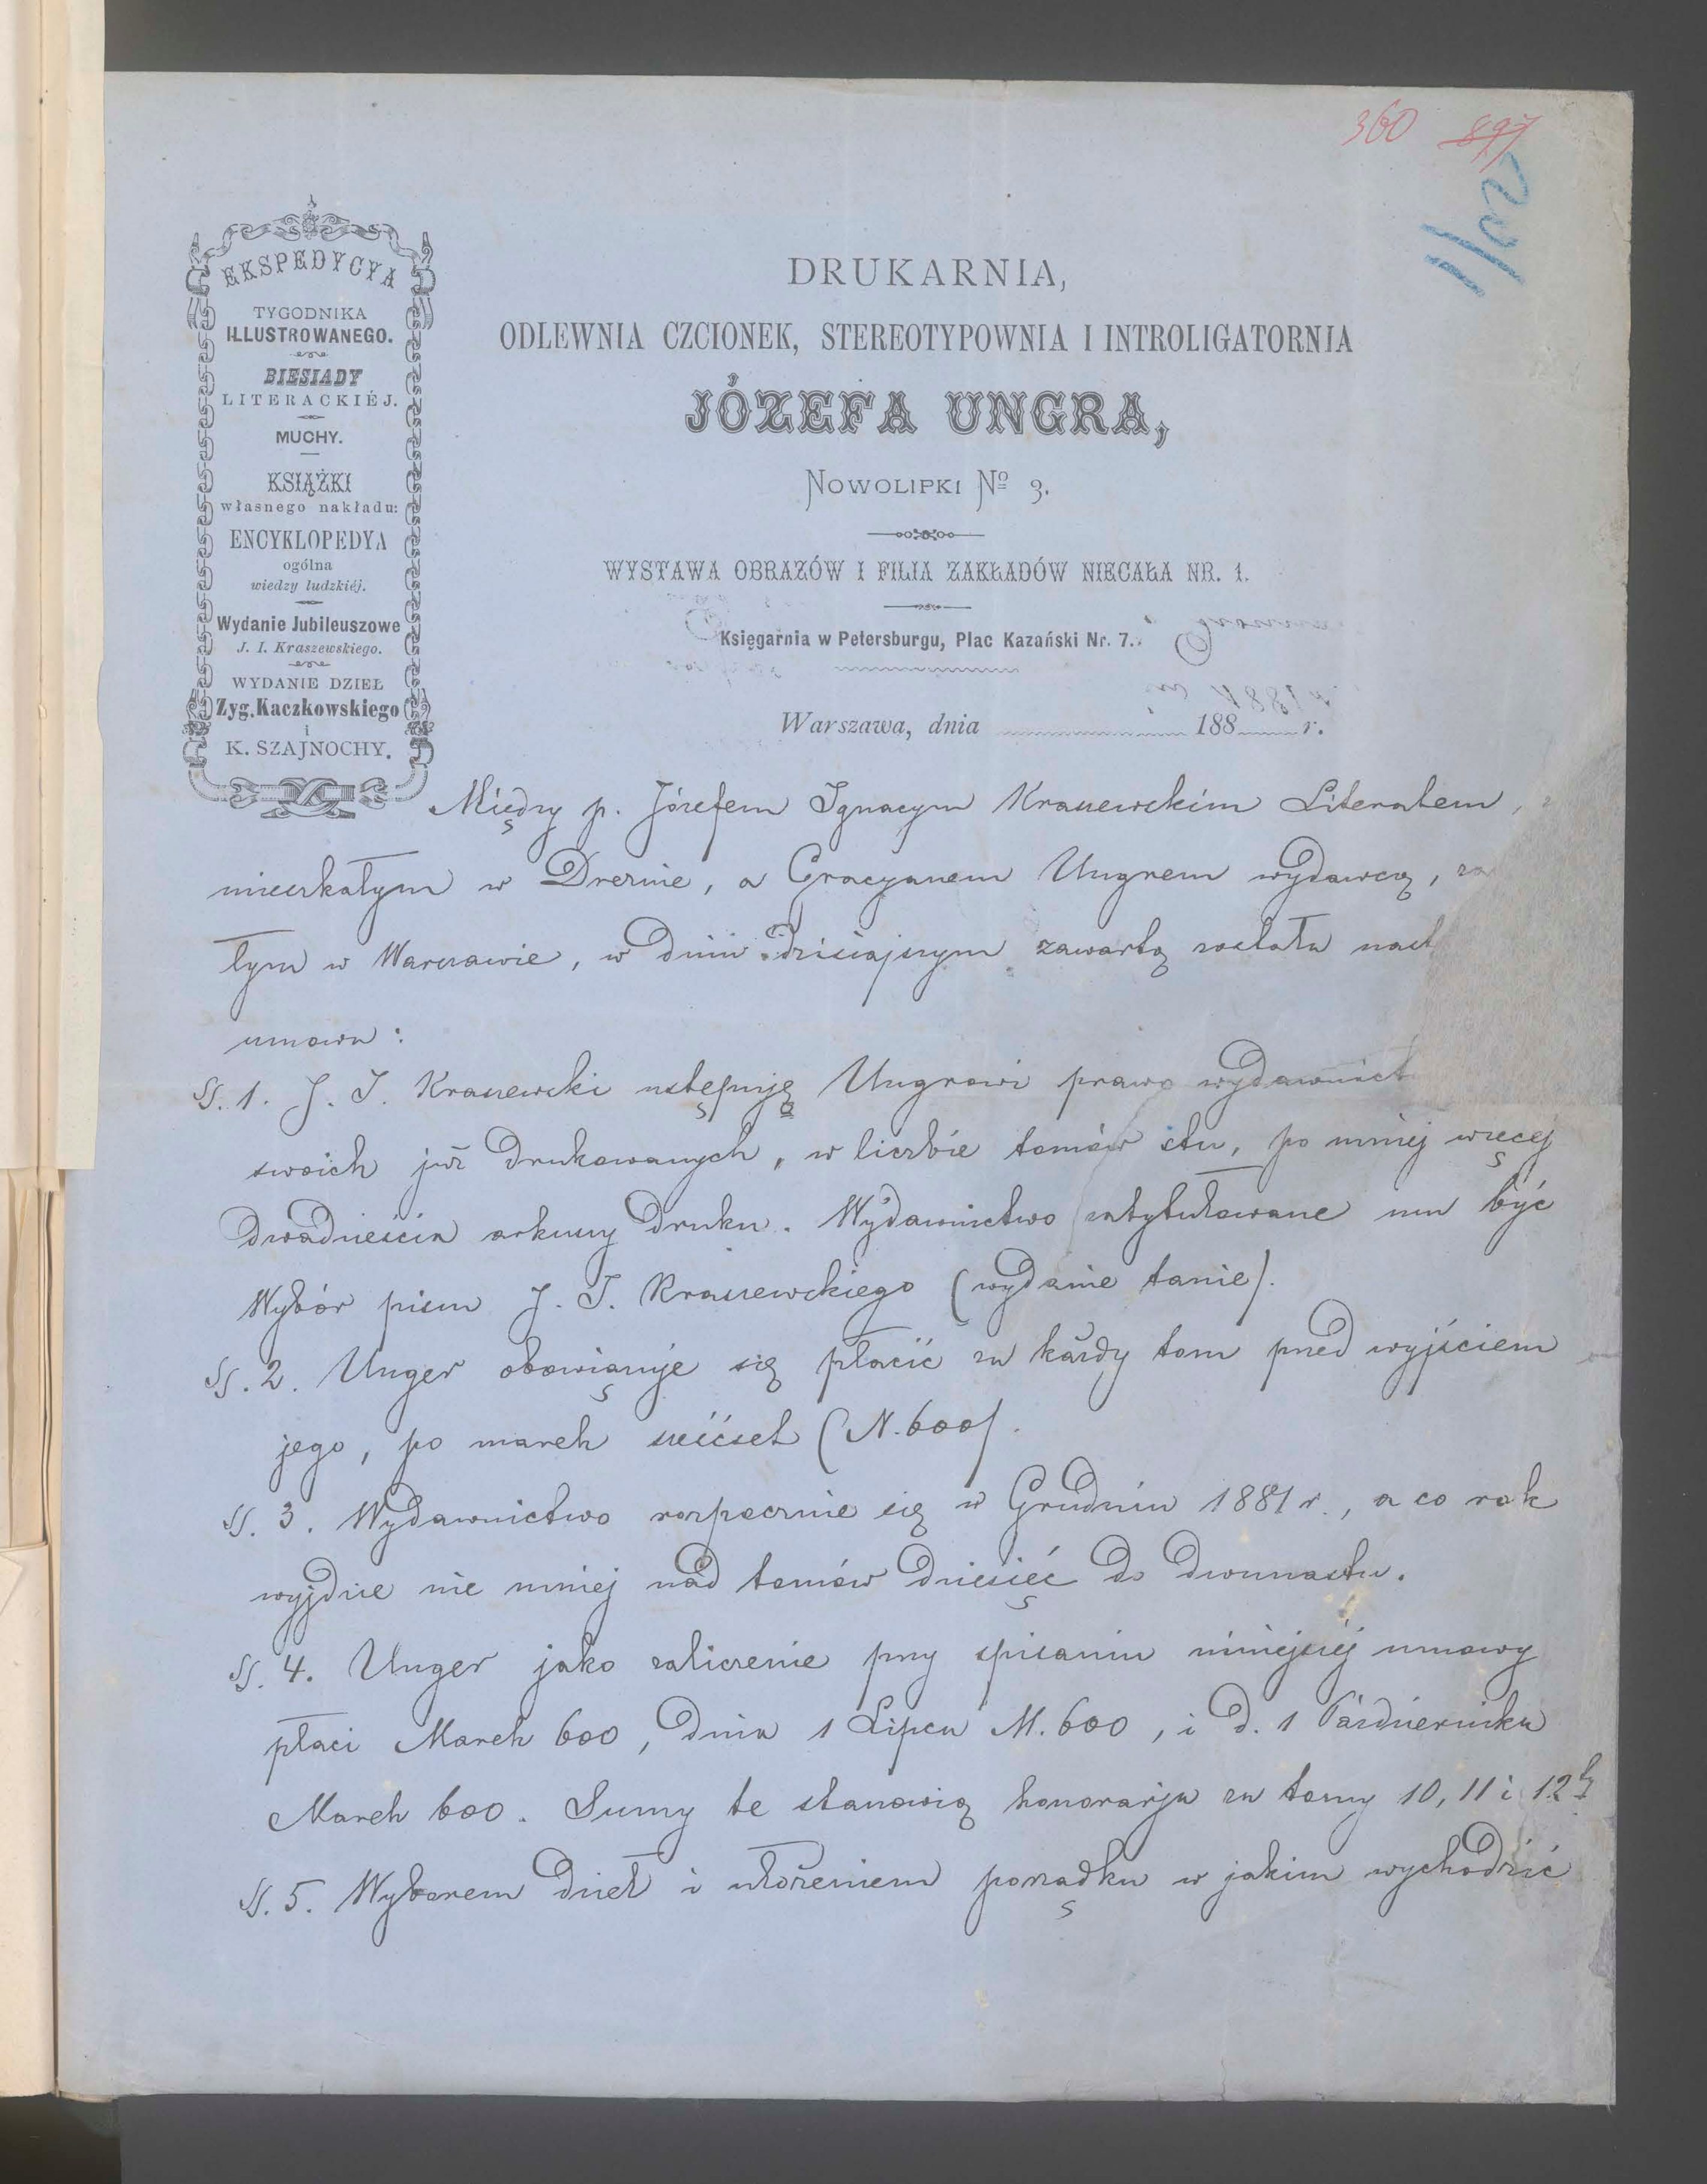 360 897
EKSPEDYCYA
TYGODNIKA
ILLUSTROWANEGO.
BIESIADY
LITERACKIÉJ.
MUCHY.
KSIĄŻKI
własnego nakładu:
ENCYKLOPEDYA
ogólna
wiedzy ludzkiéj.
Wydanie Jubileuszowe
J. I. Kraszewskiego.
WYDANIE DZIEŁ
Zyg. Kaczkowskiego
i
K. SZAJNOCHY.
DRUKARNIA,
ODLEWNIA CZCIONEK, STEREOTYPOWNIA I INTROLIGATORNIA
JÓZEFA UNGRA,
NOWOLIPKI No 3.
WYSTAWA OBRAZÓW I FILIA ZAKŁADÓW NIECAŁA NR. 1.
Księgarnia w Petersburgu, Plac Kazański Nr. 7.
Warszawa, dnia 188 r.
Między p. Józefem Ignacym Kraszewskim Literatem,
mieszkałym w Dreznie, a Gracyanem Ungrem wydawcą, za
łym w Warszawie, w dniu dzisiajszym zawartą została nast
umowa:
§. 1. J. I. Kraszewski ustępuję Ungrowi prawo wydawnict
swoich już drukowanych, w liczbie tomów stu, po mniej więcej
dwadzieścia arkuszy druku. Wydawnictwo zatytułowane ma być
Wybór pism J. I. Kraszewskiego (wydanie tanie).
§. 2. Unger obowiązuje się płacić za każdy tom przed wyjściem
jego, po marek sześćset (N. 600).
§. 3. Wydawnictwo rozpocznie się w Grudniu 1881 r., a co rok
wyjdzie nie mniej nad tomów dziesięć do dwunastu.
§. 4. Unger jako zaliczenie przy spisaniu niniejszéj umowy
płaci Marek 600, dnia 1 Lipca M. 600, i d. 1 Października
Marek 600. Sumy te stanowią honorarja za tomy 10, 11 i 12ty
§. 5. Wyborem dzieł i ułożeniem porządku w jakim wychodzić